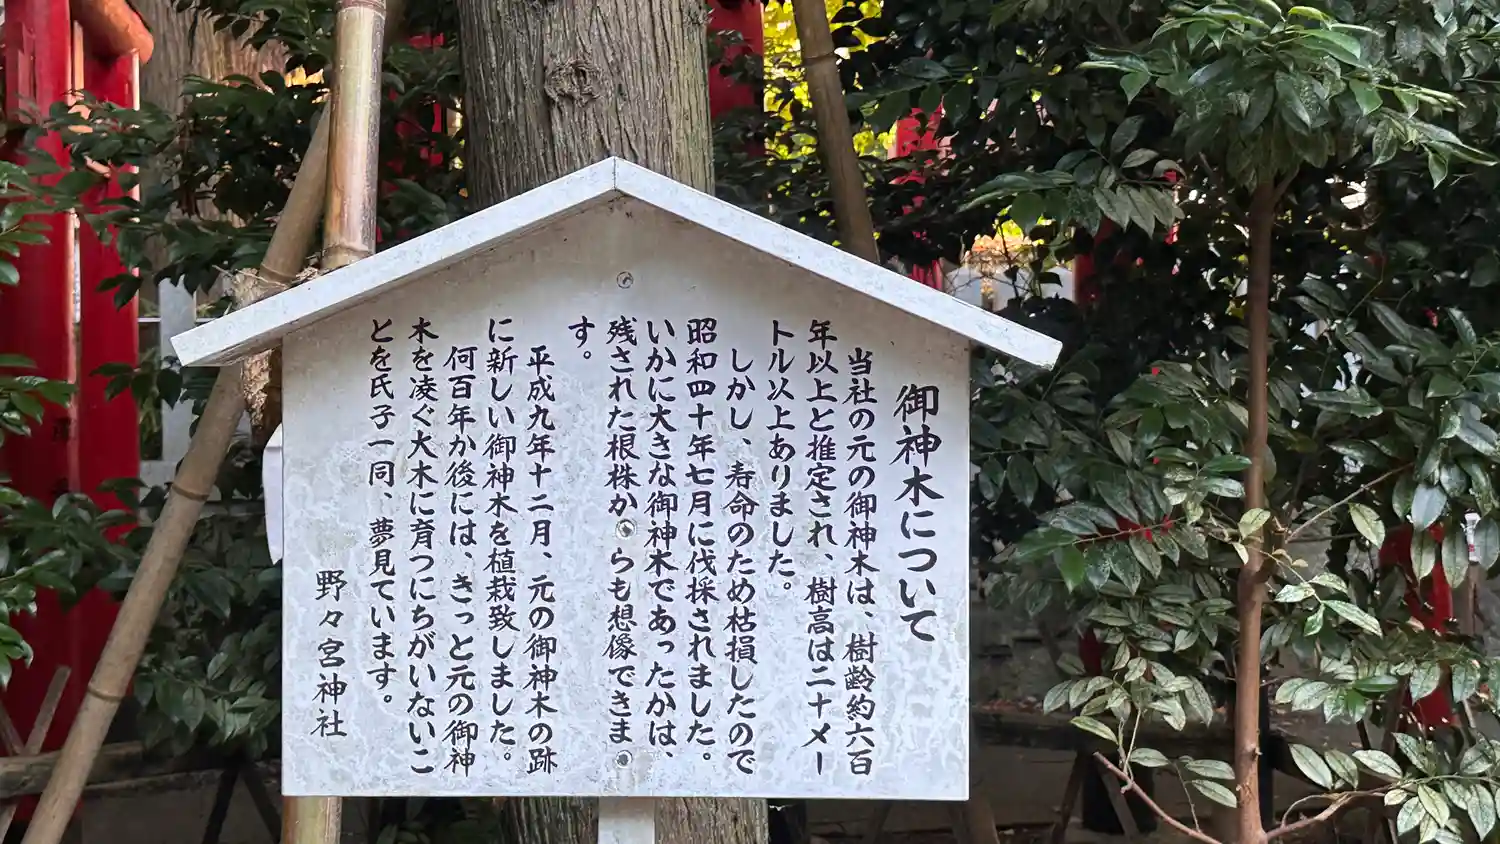 御神木について
当社の元の御神木は、樹齢約六百
年以上と推定され、樹高は二十メー
トル以上ありました。
しかし、寿命のため枯損したので
昭和四十年七月に伐採されました。
いかに大きな御神木であったかは、
残された根株からも想像できま
す。
平成九年十二月、元の御神木の跡
に新しい御神木を植栽致しました。
何百年か後には、きっと元の御神
木を凌ぐ大木に育つにちがいないこ
とを氏子一同、夢見ています。
野々宮神社